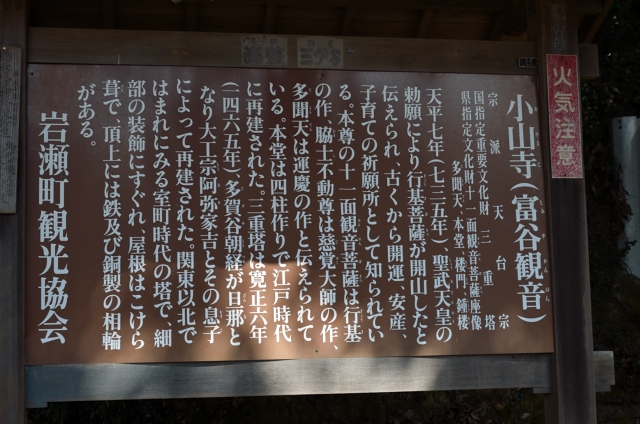 火気注意
小山寺(富谷観音)
宗派 天台宗
国指定重要文化財 三重塔
県指定文化財 十一面観音菩薩座像
多聞天、本堂、楼門、鐘楼
天平七年(七三五年)、聖武天皇の
勅願により行基菩薩が開山したと
伝えられ、古くから開運、安産、
子育ての祈願所として知られてい
る。本尊の十一面観音菩薩は行基
の作、脇士不動尊は慈覚大師の作、
多聞天は運慶の作と伝えられて
いる。本堂は四柱作りで江戸時代
に再建された。三重塔は寛正六年
(一四六五年)多賀谷朝経が旦那と
なり大工宗阿弥家吉とその息子
によって再建された。関東以北で
はまれにみる室町時代の塔で、細
部の装飾にすぐれ、屋根はこけら
葺で、頂上には鉄及び銅製の相輪
がある。
岩瀬町観光協会